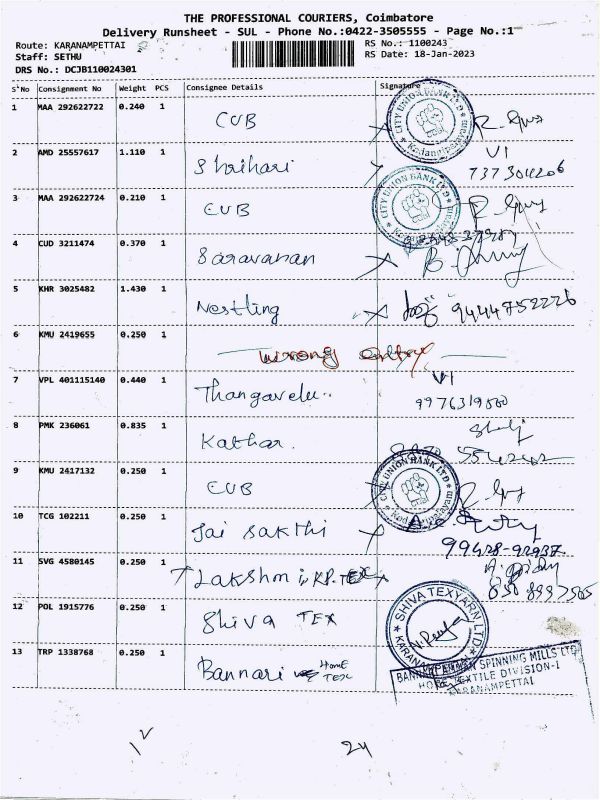 THE PROFESSIONAL COURIERS, Coimbatore
Delivery Runsheet - SUL - Phone No.:0422-3505555 - Page No.:1
Route: KARANAMPETTAI
RS No.: 1100243
Staff: SETHU
RS Date: 18-Jan-2023
DRS No.: DCJB110024301
S'No Consignment No Weight PCS Consignee Details Signature
1 MAA 292622722 0.240 1 CUB
CITY UNION BANK LTD
2 AMD 25557617 1.110 1 Shrihari
3 MAA 292622724 0.210 1 CUB
CITY UNION BANK LTD
4 CUD 3211474 0.370 1 Saravanan
5 KHR 3025482 1.430 1 Nestling 9444752226
6 KMU 2419655 0.250 1 wrong entry
7 VPL 401115140 0.440 1 Thangavelu..
8 PMK 236061 0.835 1 Kathar.
9 KMU 2417132 0.250 1 CUB
CITY UNION BANK LTD
10 TCG 102211 0.250 1 Jai Sakthi
99428-92937
11 SVG 4580145 0.250 1 Lakshmi KP. TEX
12 POL 1915776 0.250 1 Shiva TEX
SHIVA TEXYARN LTD
13 TRP 1338768 0.250 1 Bannari Home TEX
BANNARI AMMAN SPINNING MILLS LTD
HOME TEXTILE DIVISION-I
KARANAMPETTAI
12 24